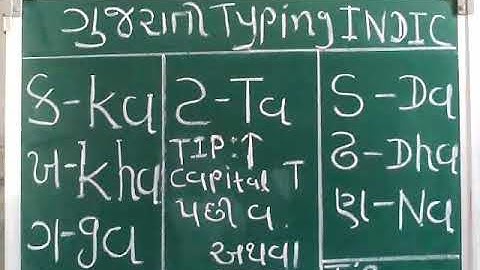 ગુજરાતી Typing INDIC
ક-ka
ખ-kha
ગ-ga
ટ-Ta
TIP:↑
Capital T
પછી a.
અથવા
ડ-Da
ઢ-Dha
ણ-Na